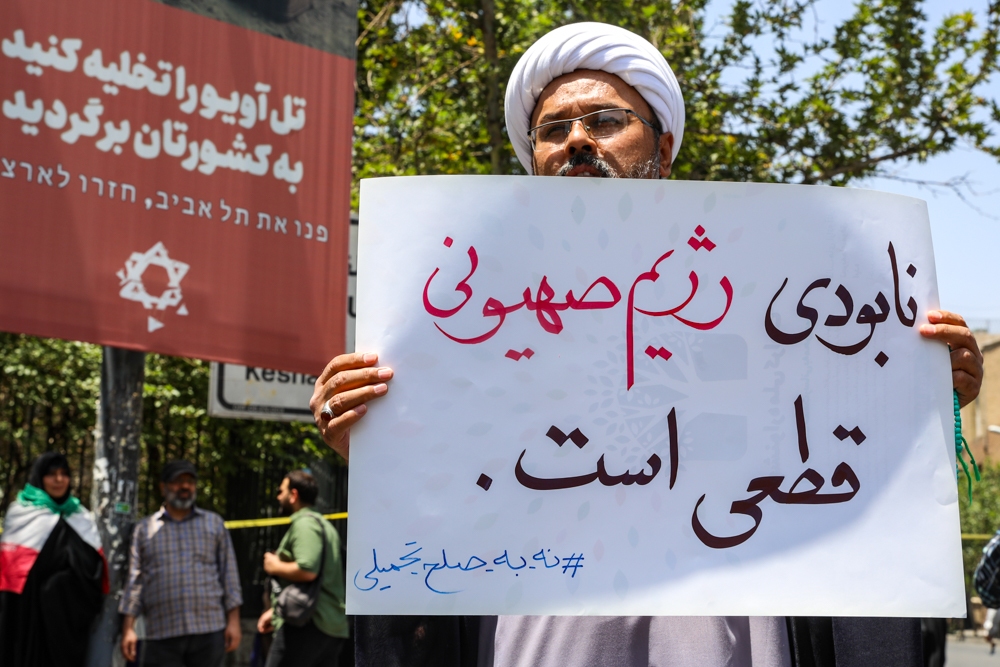 تل آویو را تخلیه کنید
به کشورتان برگردید
פנו את תל אביב, חזרו לארצ
Kesha
نابودی رژیم صهیونی
قطعی است.
#نه_به_صلح_تحمیلی